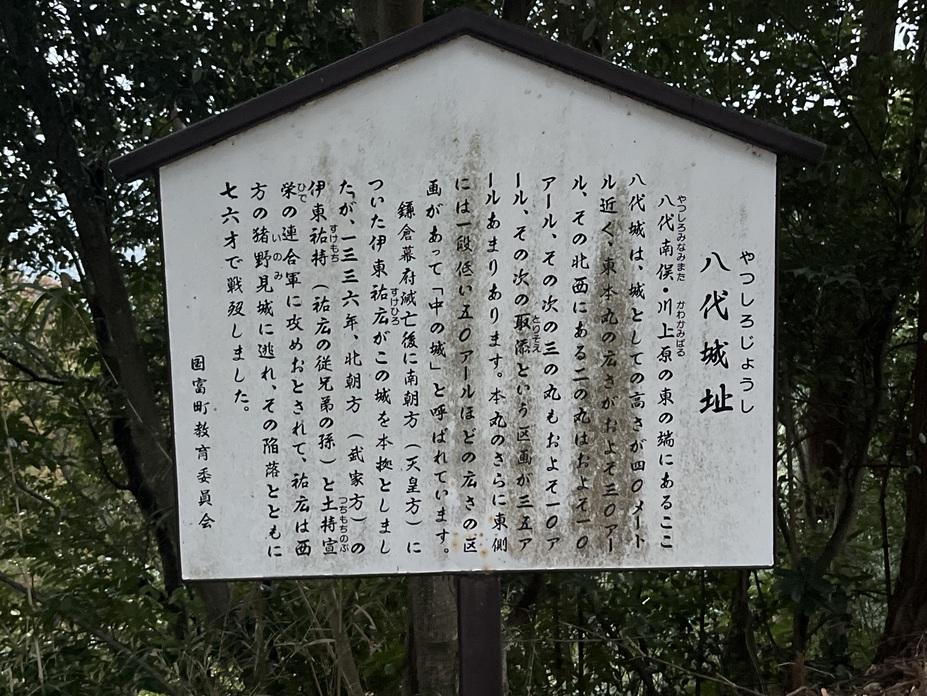 やつしろじょうし
八代城址
やつしろみなみまた　かわかみばる
八代南俣・川上原の東の端にあるここ
八代城は、城としての高さが四〇メート
ル近く、東本丸の広さがおよそ三〇アー
ル、その北西にある二の丸はおよそ一〇
アール、その次の三の丸もおよそ一〇ア
とりそえ
ール、その次の取添という区画が三五ア
ールあまりあります。本丸のさらに東側
には一段低い五〇アールほどの広さの区
画があって「中の城」と呼ばれています。
鎌倉幕府滅亡後に南朝方（天皇方）に
すけひろ
ついた伊東祐広がこの城を本拠としまし
たが、一三三六年、北朝方（武家方）の
すけもち　つちもちのぶ
伊東祐持（祐広の従兄弟の孫）と土持宣
ひで
栄の連合軍に攻めおとされて、祐広は西
いのみ
方の猪野見城に逃れ、その陥落とともに
七六才で戦歿しました。
国富町教育委員会